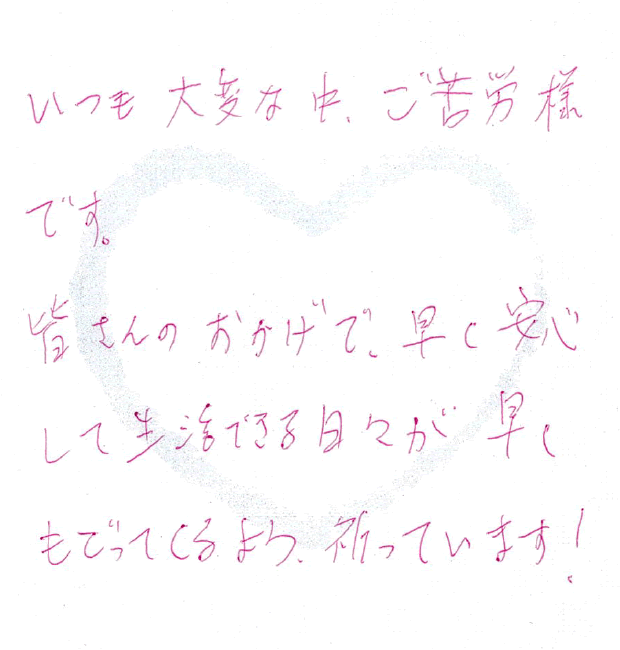 いつも大変な中、ご苦労様
です。
皆さんのおかげで、早く安心
して生活できる日々が早く
もどってくるよう、祈っています!